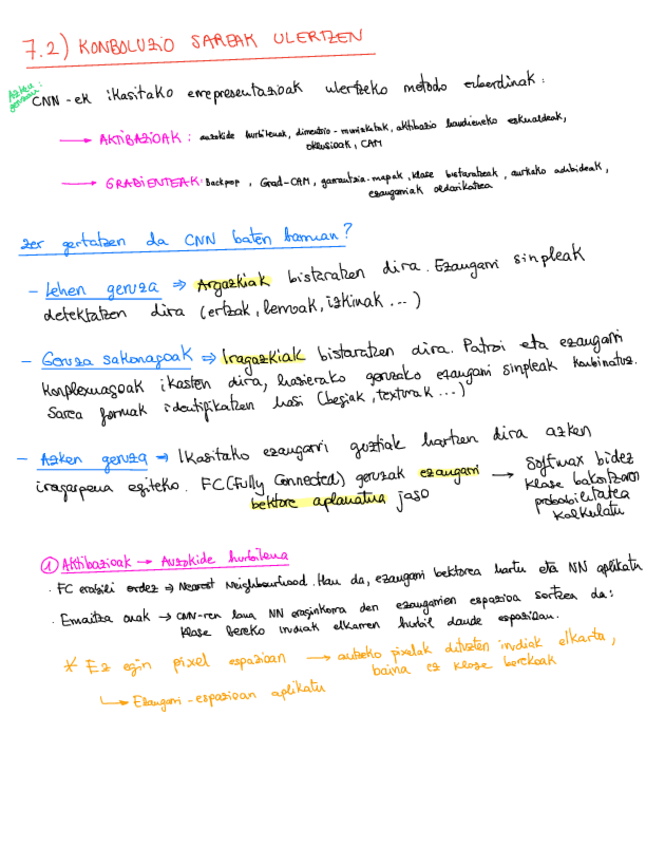 7.2) KONBOLUZIO SAREAK ULERTZEN
Azken geruzan:
CNN-ek ikasitako errepresentazioak ulertzeko metodo ezberdinak:
→ AKTIBAZIOAK: auzokide hurbilenak, dimentsio-murrizketak, aktibazio haundieneko eskualdeak,
oklusioak, CAM
→ GRADIENTEAK: Backpop, Grad-CAM, garrantzia-mapak, klase bistaratzeak, aurkako adibideak,
ezaugarriak alderikatzea
zer gertatzen da CNN baten barruan?
- Lehen geruza ⇒ Argazkiak bistaratzen dira. Ezaugarri sinpleak
detektatzen dira (ertzak, lerroak, izkinak ...)
- Geruza sakonagoak ⇒ Iragazkiak bistaratzen dira. Patroi eta ezaugarri
konplexuagoak ikasten dira, hasierako geruzako ezaugarri sinpleak konbinatuz.
Sarea formak identifikatzen hasi (begiak, texturak ...)
- Azken geruza → Ikasitako ezaugarri guztiak hartzen dira azken
iragarpena egiteko. FC (Fully Connected) geruzak ezaugarri
bektore aplanatua jaso → Softmax bidez
klase bakoitzaren
probabilitatea
kalkulatu
① Aktibazioak → Auzokide hurbilena
· FC erabili ordez ⇒ Nearest Neighbourhood. Hau da, ezaugarri bektorea hartu eta NN aplikatu
· Emaitza onak → CNN-ren lana NN eraginkorra den ezaugarrien espazioa sortzen da:
klase bereko irudiak elkarren hurbil daude espazioan.
* Ez egin pixel espazioan → antzeko pixelak dituzten irudiak elkartu,
baina ez klase berekoak
↳ Ezaugarri-espazioan aplikatu